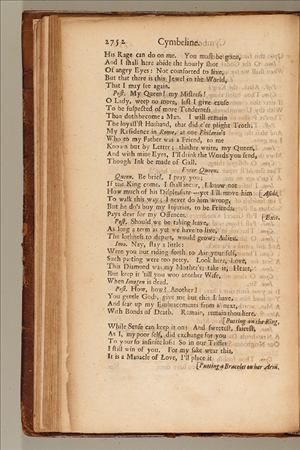 2752 Cymbeline.
His Rage can do on me. You must be gone,
And I shall here abide the hourly shot
Of angry Eyes: Not comforted to live,
But that there is this Jewel in the World,
That I may see again.
Post. My Queen! my Mistress!
O Lady, weep no more, lest I give cause
To be suspected of more Tenderness
Than doth become a Man. I will remain
The loyall'st Husband, that did e'er plight Troth.
My Residence in Rome, at one Philorio's
Who to my Father was a Friend, to me
Known but by Letter; thither write, my Queen,
And with mine Eyes, I'll drink the Words you send,
Though Ink be made of Gall.
Enter Queen.
Queen. Be brief, I pray you;
If the King come, I shall incur, I know not
How much of his Displeasure—yet I'll move him [Aside,
To walk this way; I never do him wrong,
But he do's buy my Injuries, to be Friends,
Pays dear for my Offences. [Exit.
Post. Should we be taking leave,
As long a term as yet we have to live,
The lothness to depart, would grow; Adieu.
Imo. Nay, stay a little:
Were you but riding forth to Air your self,
Such parting were too petty. Look here, Love,
This Diamond was my Mother's; take it, Heart,
But keep it 'till you woo another Wife,
When Imogen is dead.
Post. How, how! Another!
You gentle Gods, give me but this I have,
And sear up my Embracements from a next,
With Bonds of Death. Remain, remain thou here,
[Putting on the Ring.
While Sense can keep it on: And sweetest, fairest,
As I, my poor self, did exchange for you
To your so infinite loss: So in our Trifles
I still win of you. For my sake wear this,
It is a Manacle of Love, I'll place it
[Putting a Bracelet on her Arm.